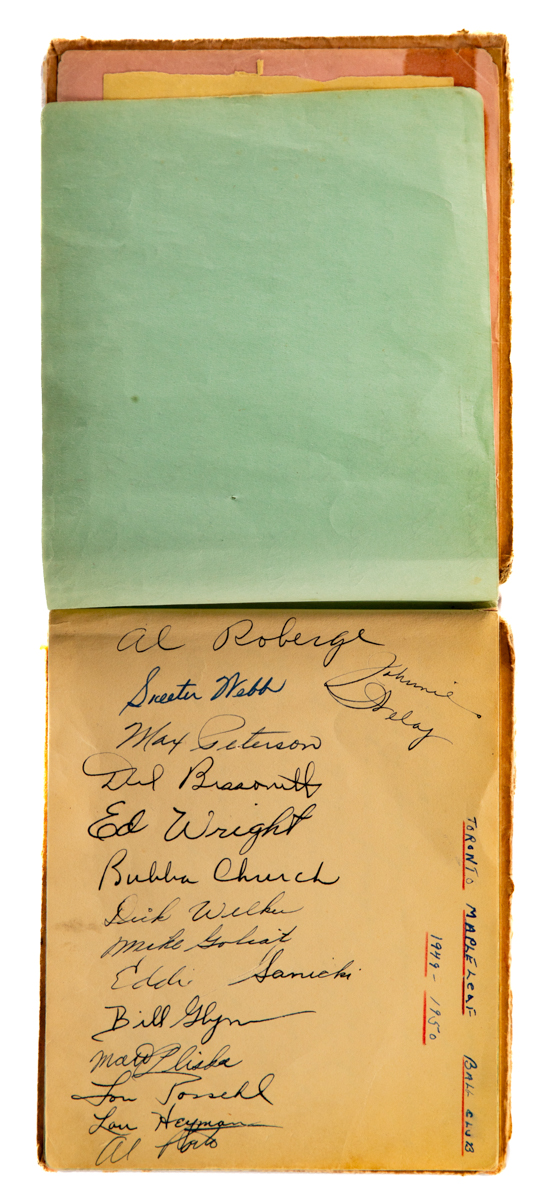 Al Roberge
Johnnie
Skeeter Webb
Max Peterson
Del Bissonette
Ed Wright
Bubba Church
Dick Welker
Mike Goliat
Eddie Sanicki
Bill Glynn
Matt Pliska
Lou Possehl
Lou Heyman
Al Porto
TORONTO MAPLE LEAF BALL CLUB
1949-1950